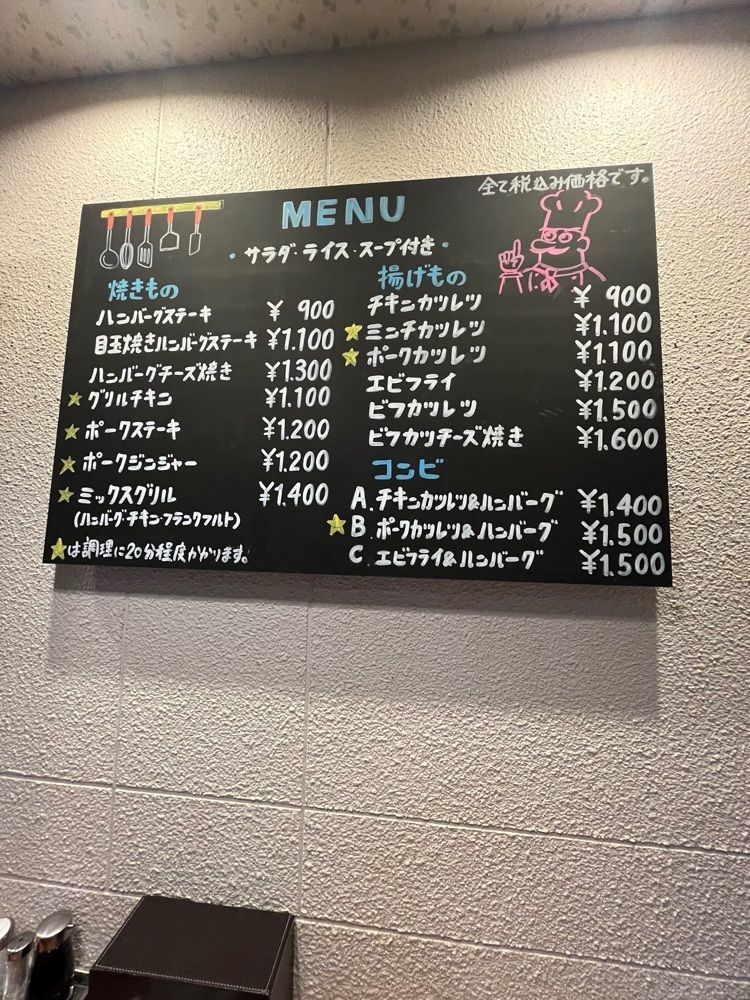 全て税込み価格です。
MENU
・サラダ・ライス・スープ付き・
焼きもの
ハンバーグステーキ ¥900
目玉焼きハンバーグステーキ ¥1.100
ハンバーグチーズ焼き ¥1.300
★グリルチキン ¥1.100
★ポークステーキ ¥1.200
★ポークジンジャー ¥1.200
★ミックスグリル ¥1.400
(ハンバーグ・チキン・フランクフルト)
★は調理に20分程度かかります。
揚げもの
チキンカツレツ ¥900
★ミンチカツレツ ¥1.100
★ポークカツレツ ¥1.100
エビフライ ¥1.200
ビフカツレツ ¥1.500
ビフカツチーズ焼き ¥1.600
コンビ
A.チキンカツレツ&ハンバーグ ¥1.400
★B.ポークカツレツ&ハンバーグ ¥1.500
C.エビフライ&ハンバーグ ¥1.500